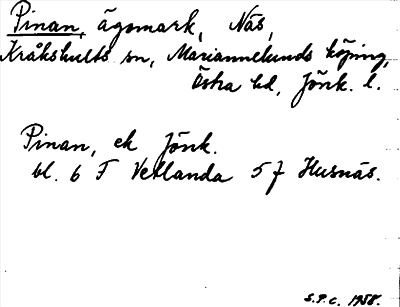 Pinan, ägomark, Näs,
Kråkshults sn, Mariannelunds köping,
Östra hd, Jönk. l.
Pinan, ek Jönk.
bl. 6 F Vetlanda 5 f Husnäs.
S.P.C. 1958.